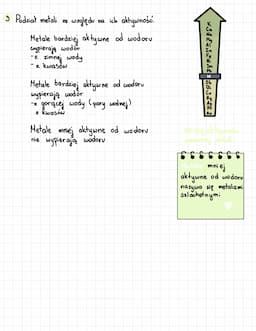 3 Podział metali ze względu na ich aktywność.
Metale bardziej aktywne od wodoru
wypierają wodór
- z zimnej wody
- z kwasów
Metale bardziej aktywne od wodoru
wypierają wodór
- z gorącej wody (pary wodnej)
z kwasów
Metale mniej aktywne od wodoru
nie wypierają wodoru
H
mniej
aktywne od wodoru
nazywa się metalami
szlachetnymi